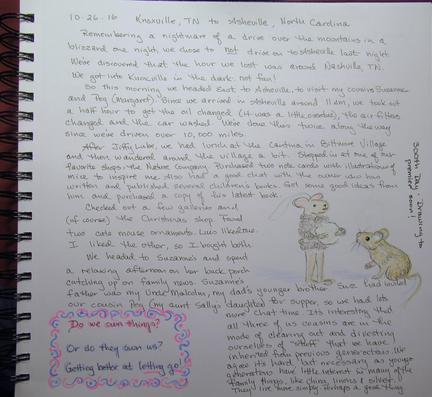 10-26-16 Knoxville, TN to Asheville, North Carolina
Remembering a nightmare of a drive over the mountains in a
blizzard one night, we chose to not drive on to Asheville last night
We've discovered that the hour we lost was around Nashville, TN.
We got into Knoxville in the dark. not fun!
So this morning we headed East to Asheville, to visit my cousins Suzanne
and Peg (Margaret). Since we arrived in Asheville around 11 am, we took out
a half hour to get the oil changed (it was a little overdue), the air filters
changed and the car washed. We've done this twice along the way
since we've driven over 10,000 miles.
After Jiffy Lube, we had lunch at the Cantina in Biltmore Village
and then wandered around the village a bit. Stopped in at one of our
favorite shops: the Nature Company. Purchased two note cards with illustrations of
mice to inspire me. Also had a good chat with the owner who has
written and published several children's books. Got some good ideas from
him and purchased a copy of his latest book.
Checked out a few galleries and
(of course) the Christmas shop. Found
two cute mouse ornaments. Luis liked one.
I liked the other, so I bought both
We headed to Suzanne's and spent
a relaxing afternoon on her back porch
catching up on family news. Suzanne's
father was my Uncle Malcolm, my dad's younger brother. Suz had invited
our cousin Peg (my aunt Sally's daughter) for supper, so we had lots
more chat time. Its interesting that
all three of us cousins are in the
mode of clearing out and digesting
ourselves of "stuff" that we have
inherited from previous generations. We
agree its hard, but necessary as younger
generations have little interest in many of the
family things, like china, linens & silver.
They live more simply. Perhaps a good thing
Do we own things?
Or do they own us?
Getting better at letting go!
Drawings to